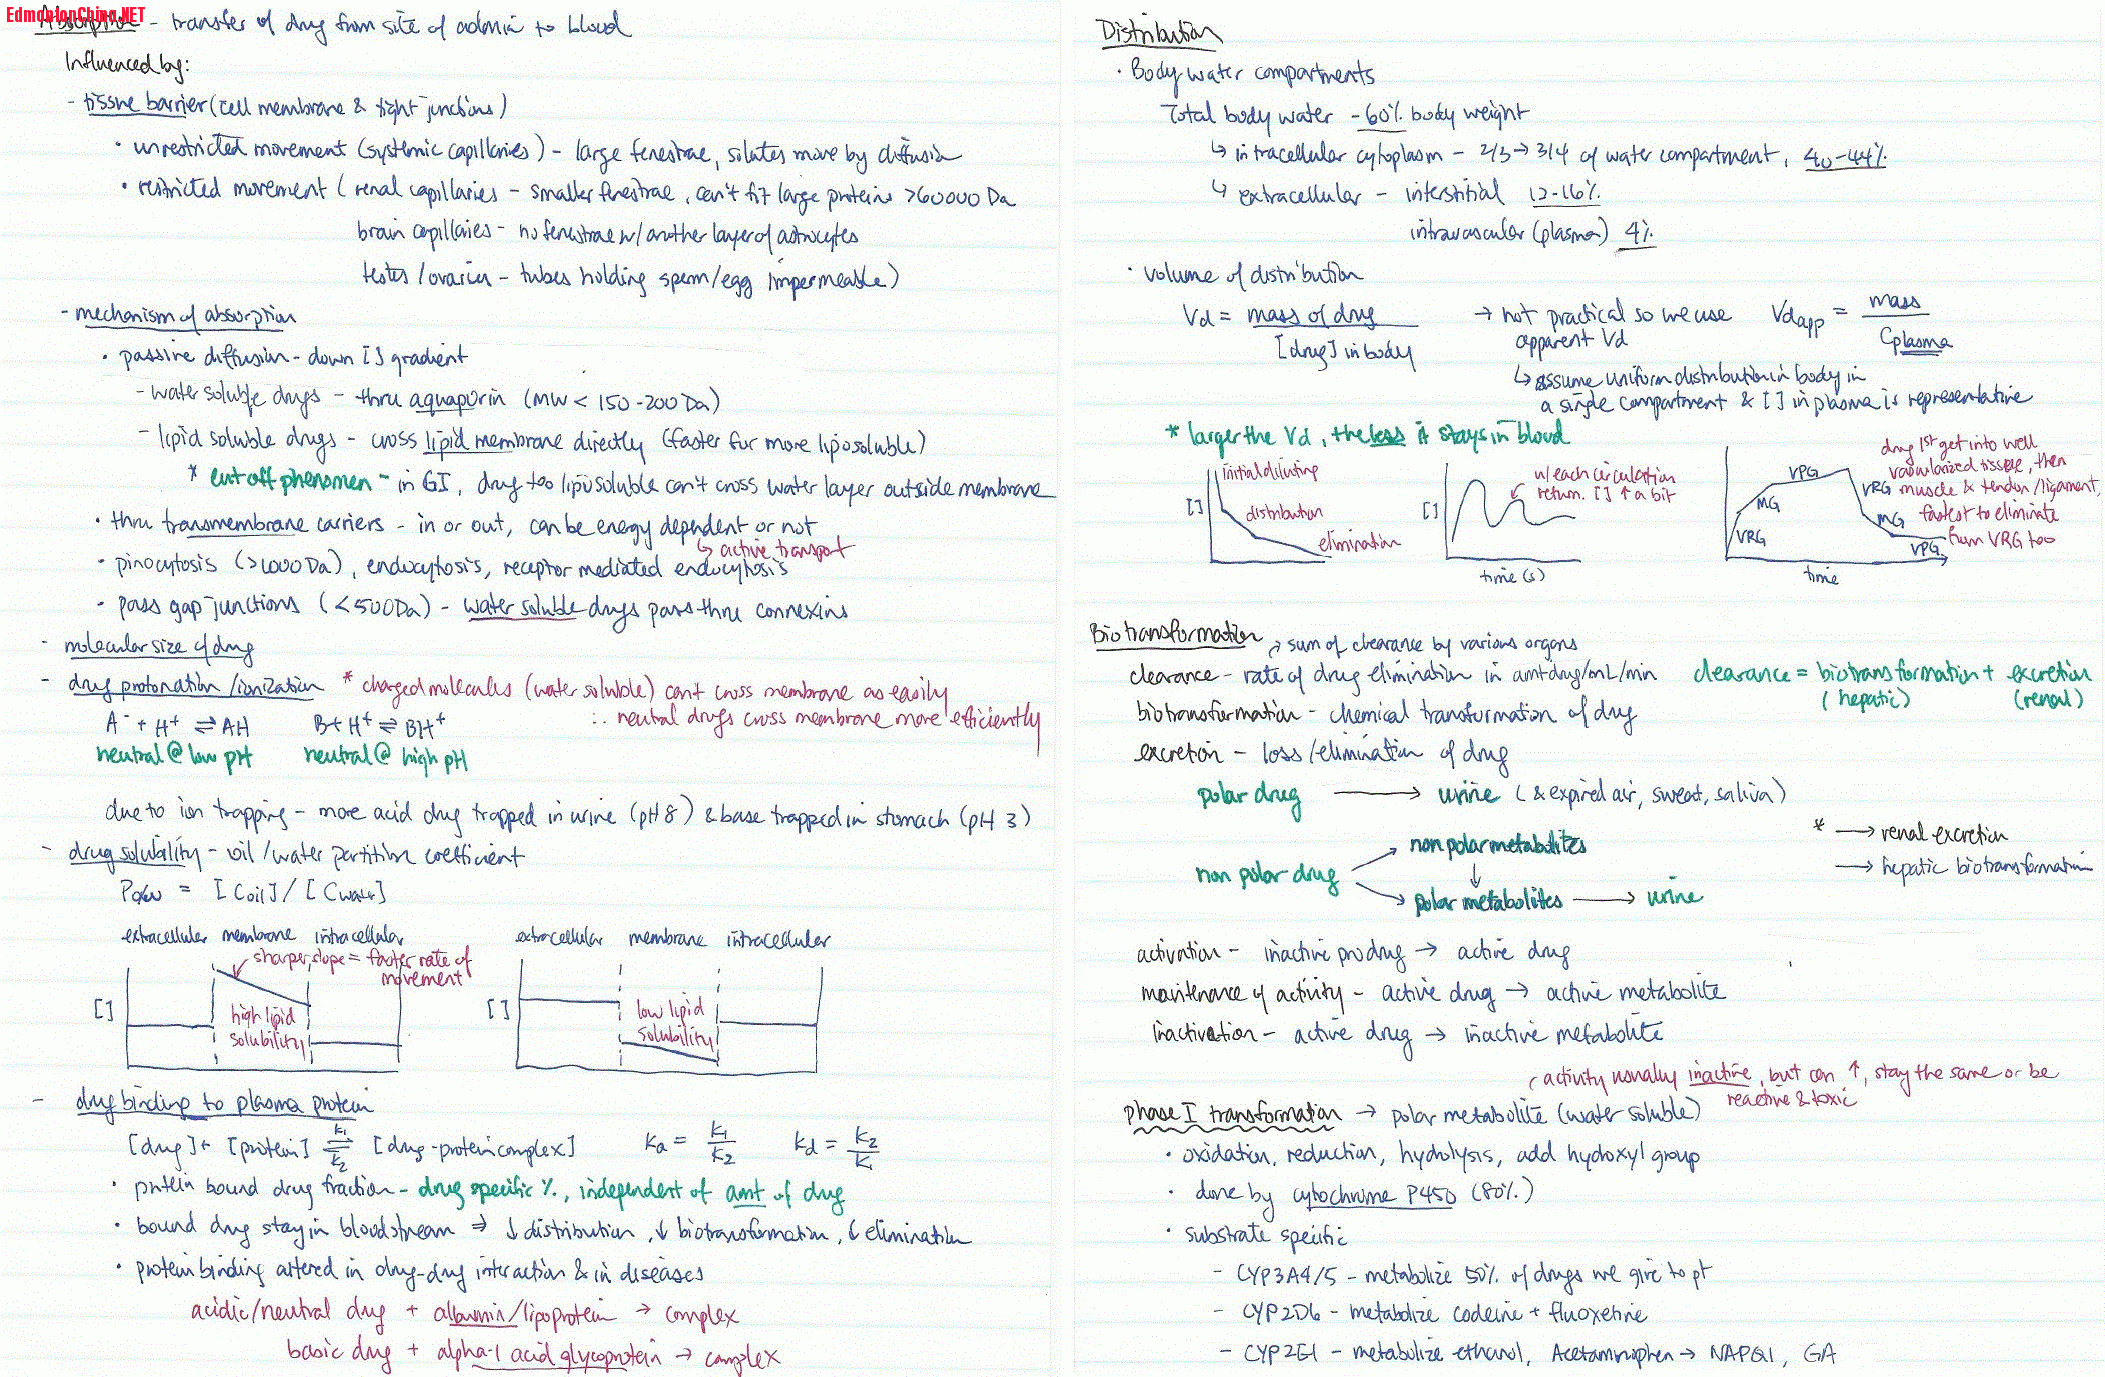 EdmontonChina.NET
Absorption - transfer of drug from site of admin to blood
Influenced by:
- tissue barrier (cell membrane & tight junctions)
· unrestricted movement (systemic capillaries) - large fenestrae, solutes move by diffusion
· restricted movement (renal capillaries - smaller fenestrae, can't fit large proteins >60000 Da
brain capillaries - no fenestrae w/ another layer of astrocytes
testes/ovaries - tubes holding sperm/egg impermeable)
- mechanism of absorption
· passive diffusion - down [] gradient
- water soluble drugs - thru aquaporin (MW < 150-200 Da)
- lipid soluble drugs - cross lipid membrane directly (faster for more liposoluble)
* cut off phenomen - in GI, drug too liposoluble can't cross water layer outside membrane
· thru transmembrane carriers - in or out, can be energy dependent or not
↳ active transport
· pinocytosis (>1000 Da), endocytosis, receptor mediated endocytosis
· pass gap junctions (<500 Da) - water soluble drugs pass thru connexins
- molecular size of drug
- drug protonation/ionization * charged molecules (water soluble) can't cross membrane as easily
∴ neutral drugs cross membrane more efficiently
A⁻ + H⁺ ⇌ AH B + H⁺ ⇌ BH⁺
neutral @ low pH neutral @ high pH
due to ion trapping - more acid drug trapped in urine (pH 8) & base trapped in stomach (pH 3)
- drug solubility - oil/water partition coefficient
Po/w = [Coil] / [Cwater]
extracellular membrane intracellular
sharper slope = faster rate of movement
[]
high lipid solubility
extracellular membrane intracellular
[]
low lipid solubility
- drug binding to plasma protein
[drug] + [protein] k₁ ⇌ k₂ [drug-protein complex] Ka = k₁/k₂ Kd = k₂/k₁
· protein bound drug fraction - drug specific %, independent of amt of drug
· bound drug stay in bloodstream ⇒ ↓ distribution, ↓ biotransformation, ↓ elimination
· protein binding altered in drug-drug interaction & in diseases
acidic/neutral drug + albumin/lipoprotein → complex
basic drug + alpha-1 acid glycoprotein → complex
Distribution
· Body water compartments
Total body water - 60% body weight
↳ intracellular cytoplasm - 2/3 → 3/4 of water compartment, 40-44%
↳ extracellular - interstitial 12-16%
intravascular (plasma) 4%
· volume of distribution
Vd = mass of drug / [drug] in body → not practical so we use apparent Vd Vdapp = mass / Cplasma
↳ assume uniform distribution in body in
a single compartment & [] in plasma is representative
* larger the Vd, the less it stays in blood
[]
initial diluting
distribution
elimination
[]
w/ each circulation
return. [] ↑ a bit
time (s)
VRG
MG
VPG
VRG
MG
VPG
time
drug 1st get into well
vascularized tissue, then
muscle & tendon/ligament,
fastest to eliminate
from VRG too
Biotransformation
↗ sum of clearance by various organs
clearance - rate of drug elimination in amt drug/mL/min clearance = biotransformation + excretion
(hepatic) (renal)
biotransformation - chemical transformation of drug
excretion - loss/elimination of drug
polar drug → urine (& expired air, sweat, saliva)
* → renal excretion
→ hepatic biotransformation
non polar metabolites
non polar drug
polar metabolites → urine
activation - inactive prodrug → active drug
maintenance of activity - active drug → active metabolite
inactivation - active drug → inactive metabolite
activity usually inactive, but can ↑, stay the same or be
reactive & toxic
phase I transformation → polar metabolite (water soluble)
· oxidation, reduction, hydrolysis, add hydoxyl group
· done by cytochrome P450 (80%)
· substrate specific
- CYP3A4/5 - metabolize 50% of drugs we give to pt
- CYP2D6 - metabolize codeine + fluoxetine
- CYP2E1 - metabolize ethanol, Acetaminophen → NAPQI, GA